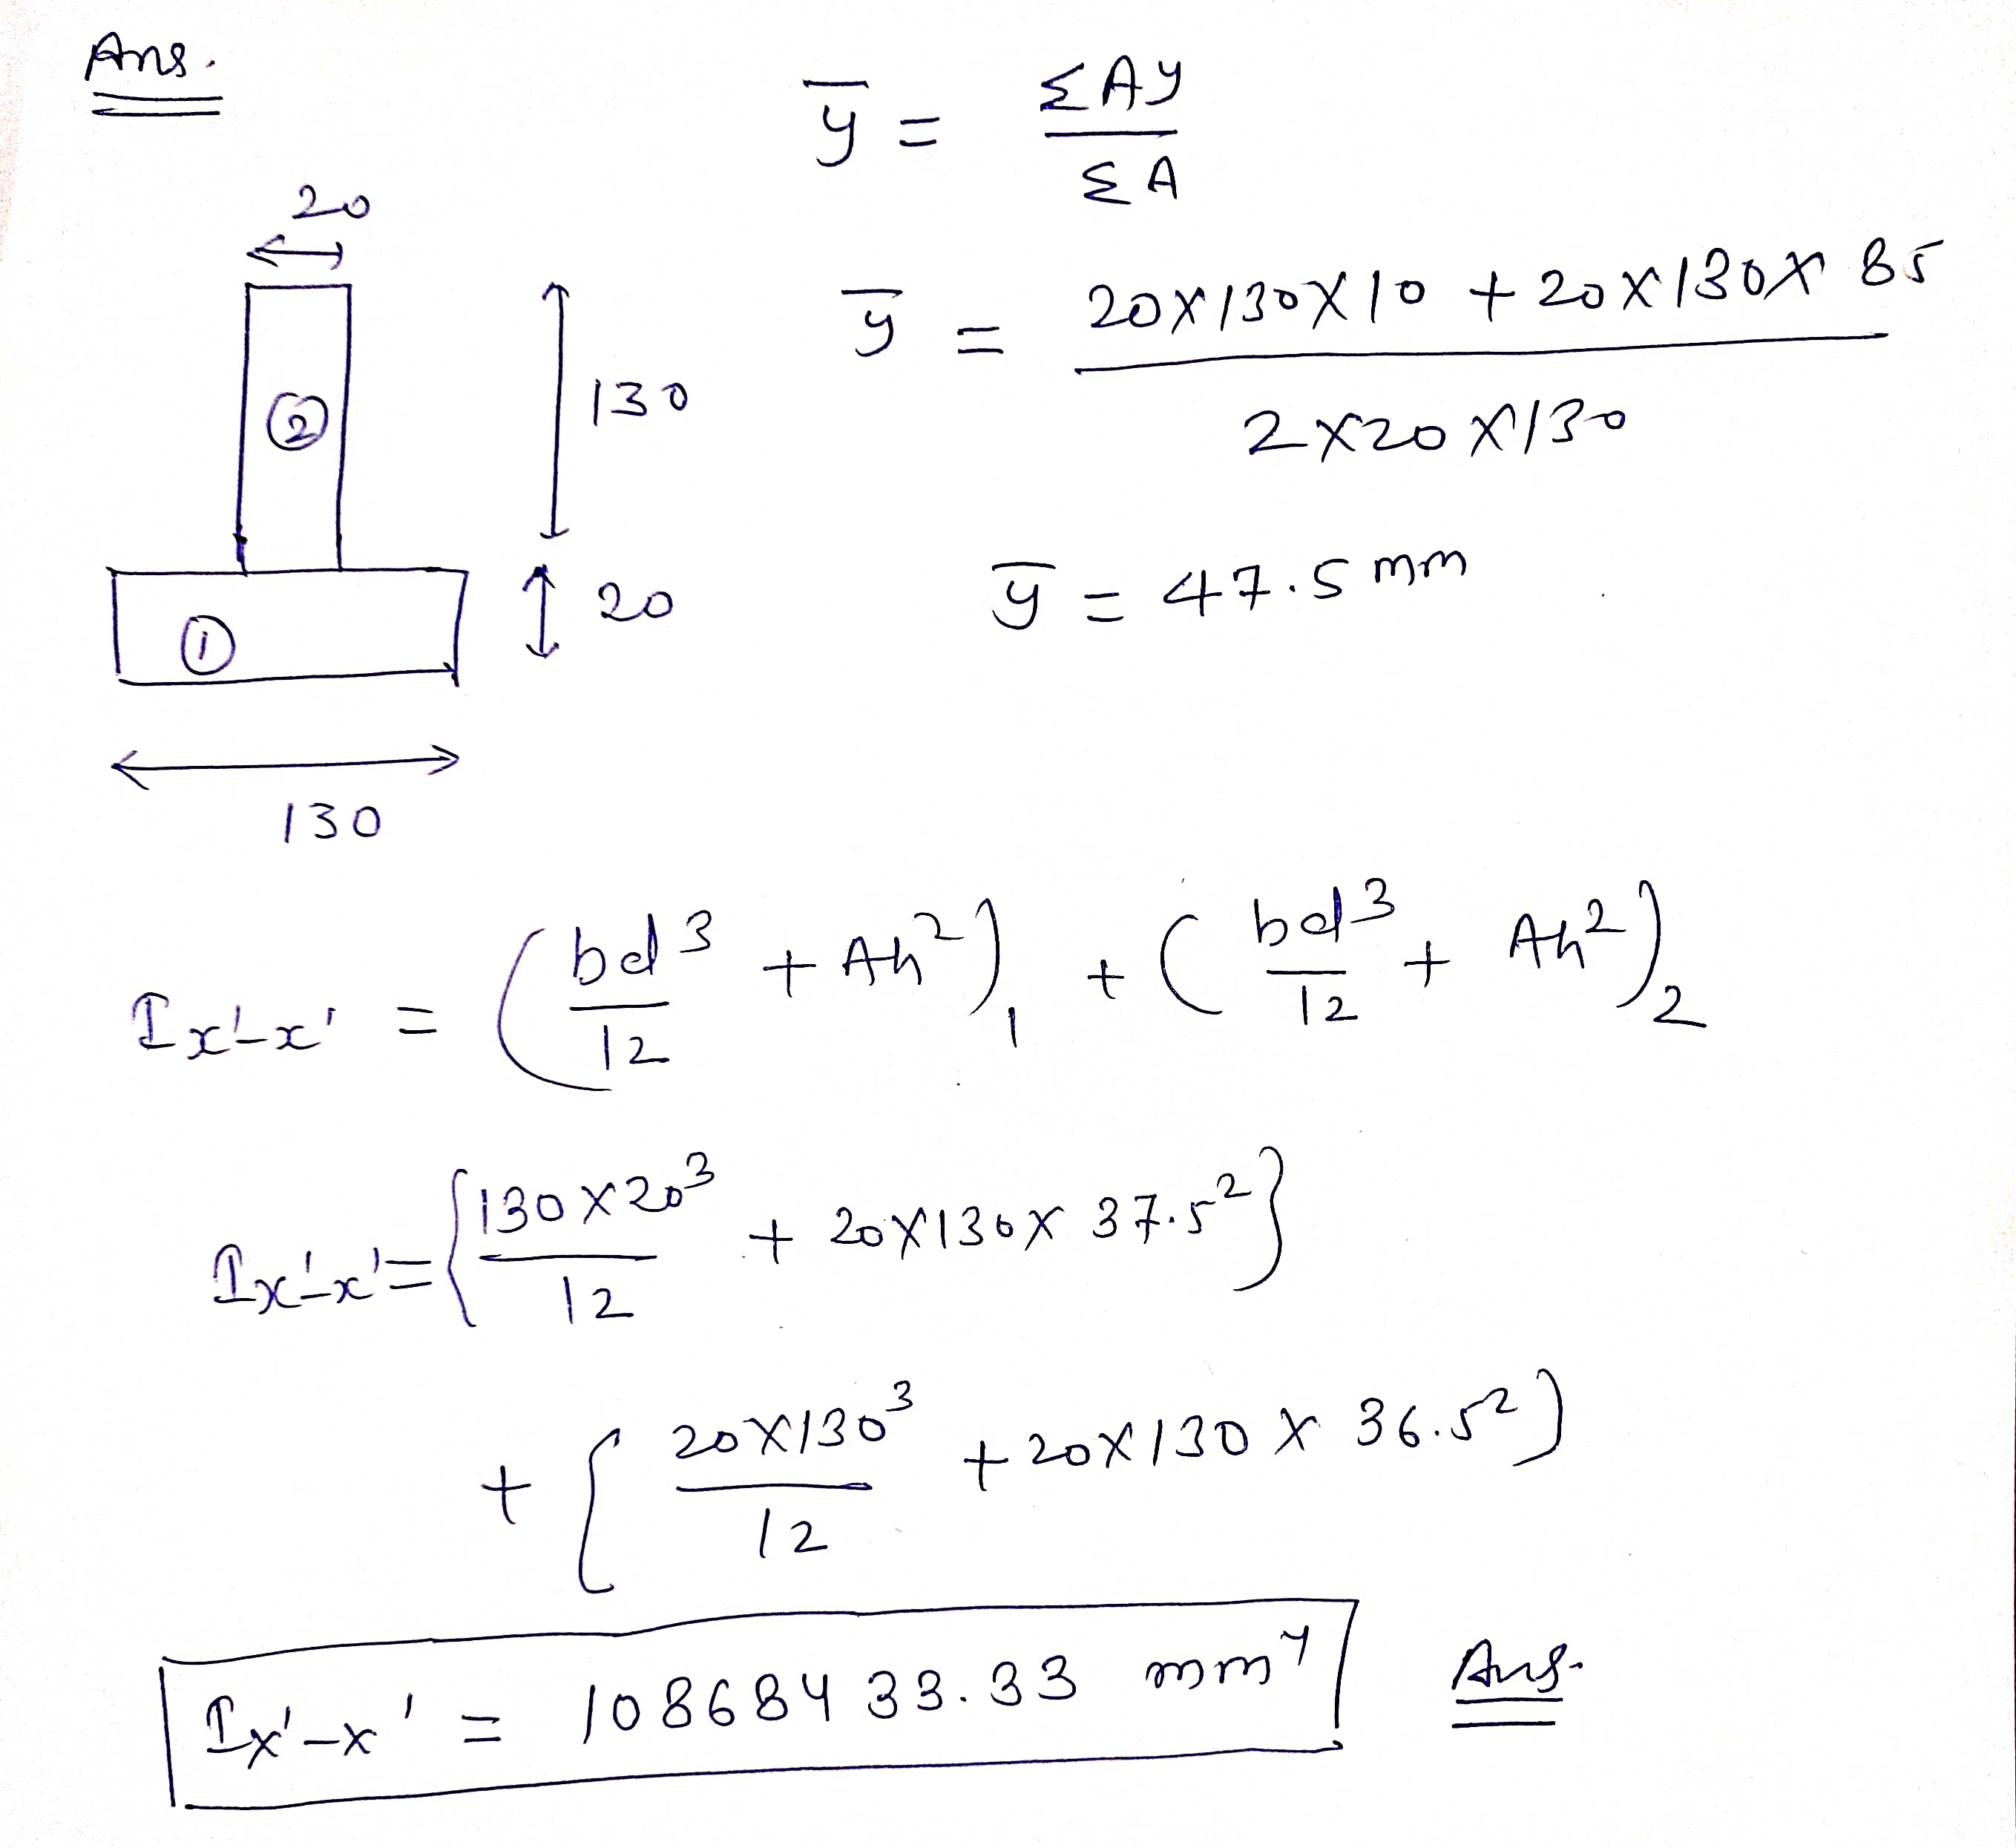 Ans.
ȳ = ΣAy / ΣA
20
ȳ = 20×130×10 + 20×130×85 / 2×20×130
130
②
ȳ = 47.5 mm
20
①
130
Ix'-x' = (bd³/12 + Ah²)₁ + (bd³/12 + Ah²)₂
Ix'-x' = {130×20³/12 + 20×130×37.5²}
+ {20×130³/12 + 20×130×36.5²)
Ix'-x' = 10868433.33 mm⁴ Ans.